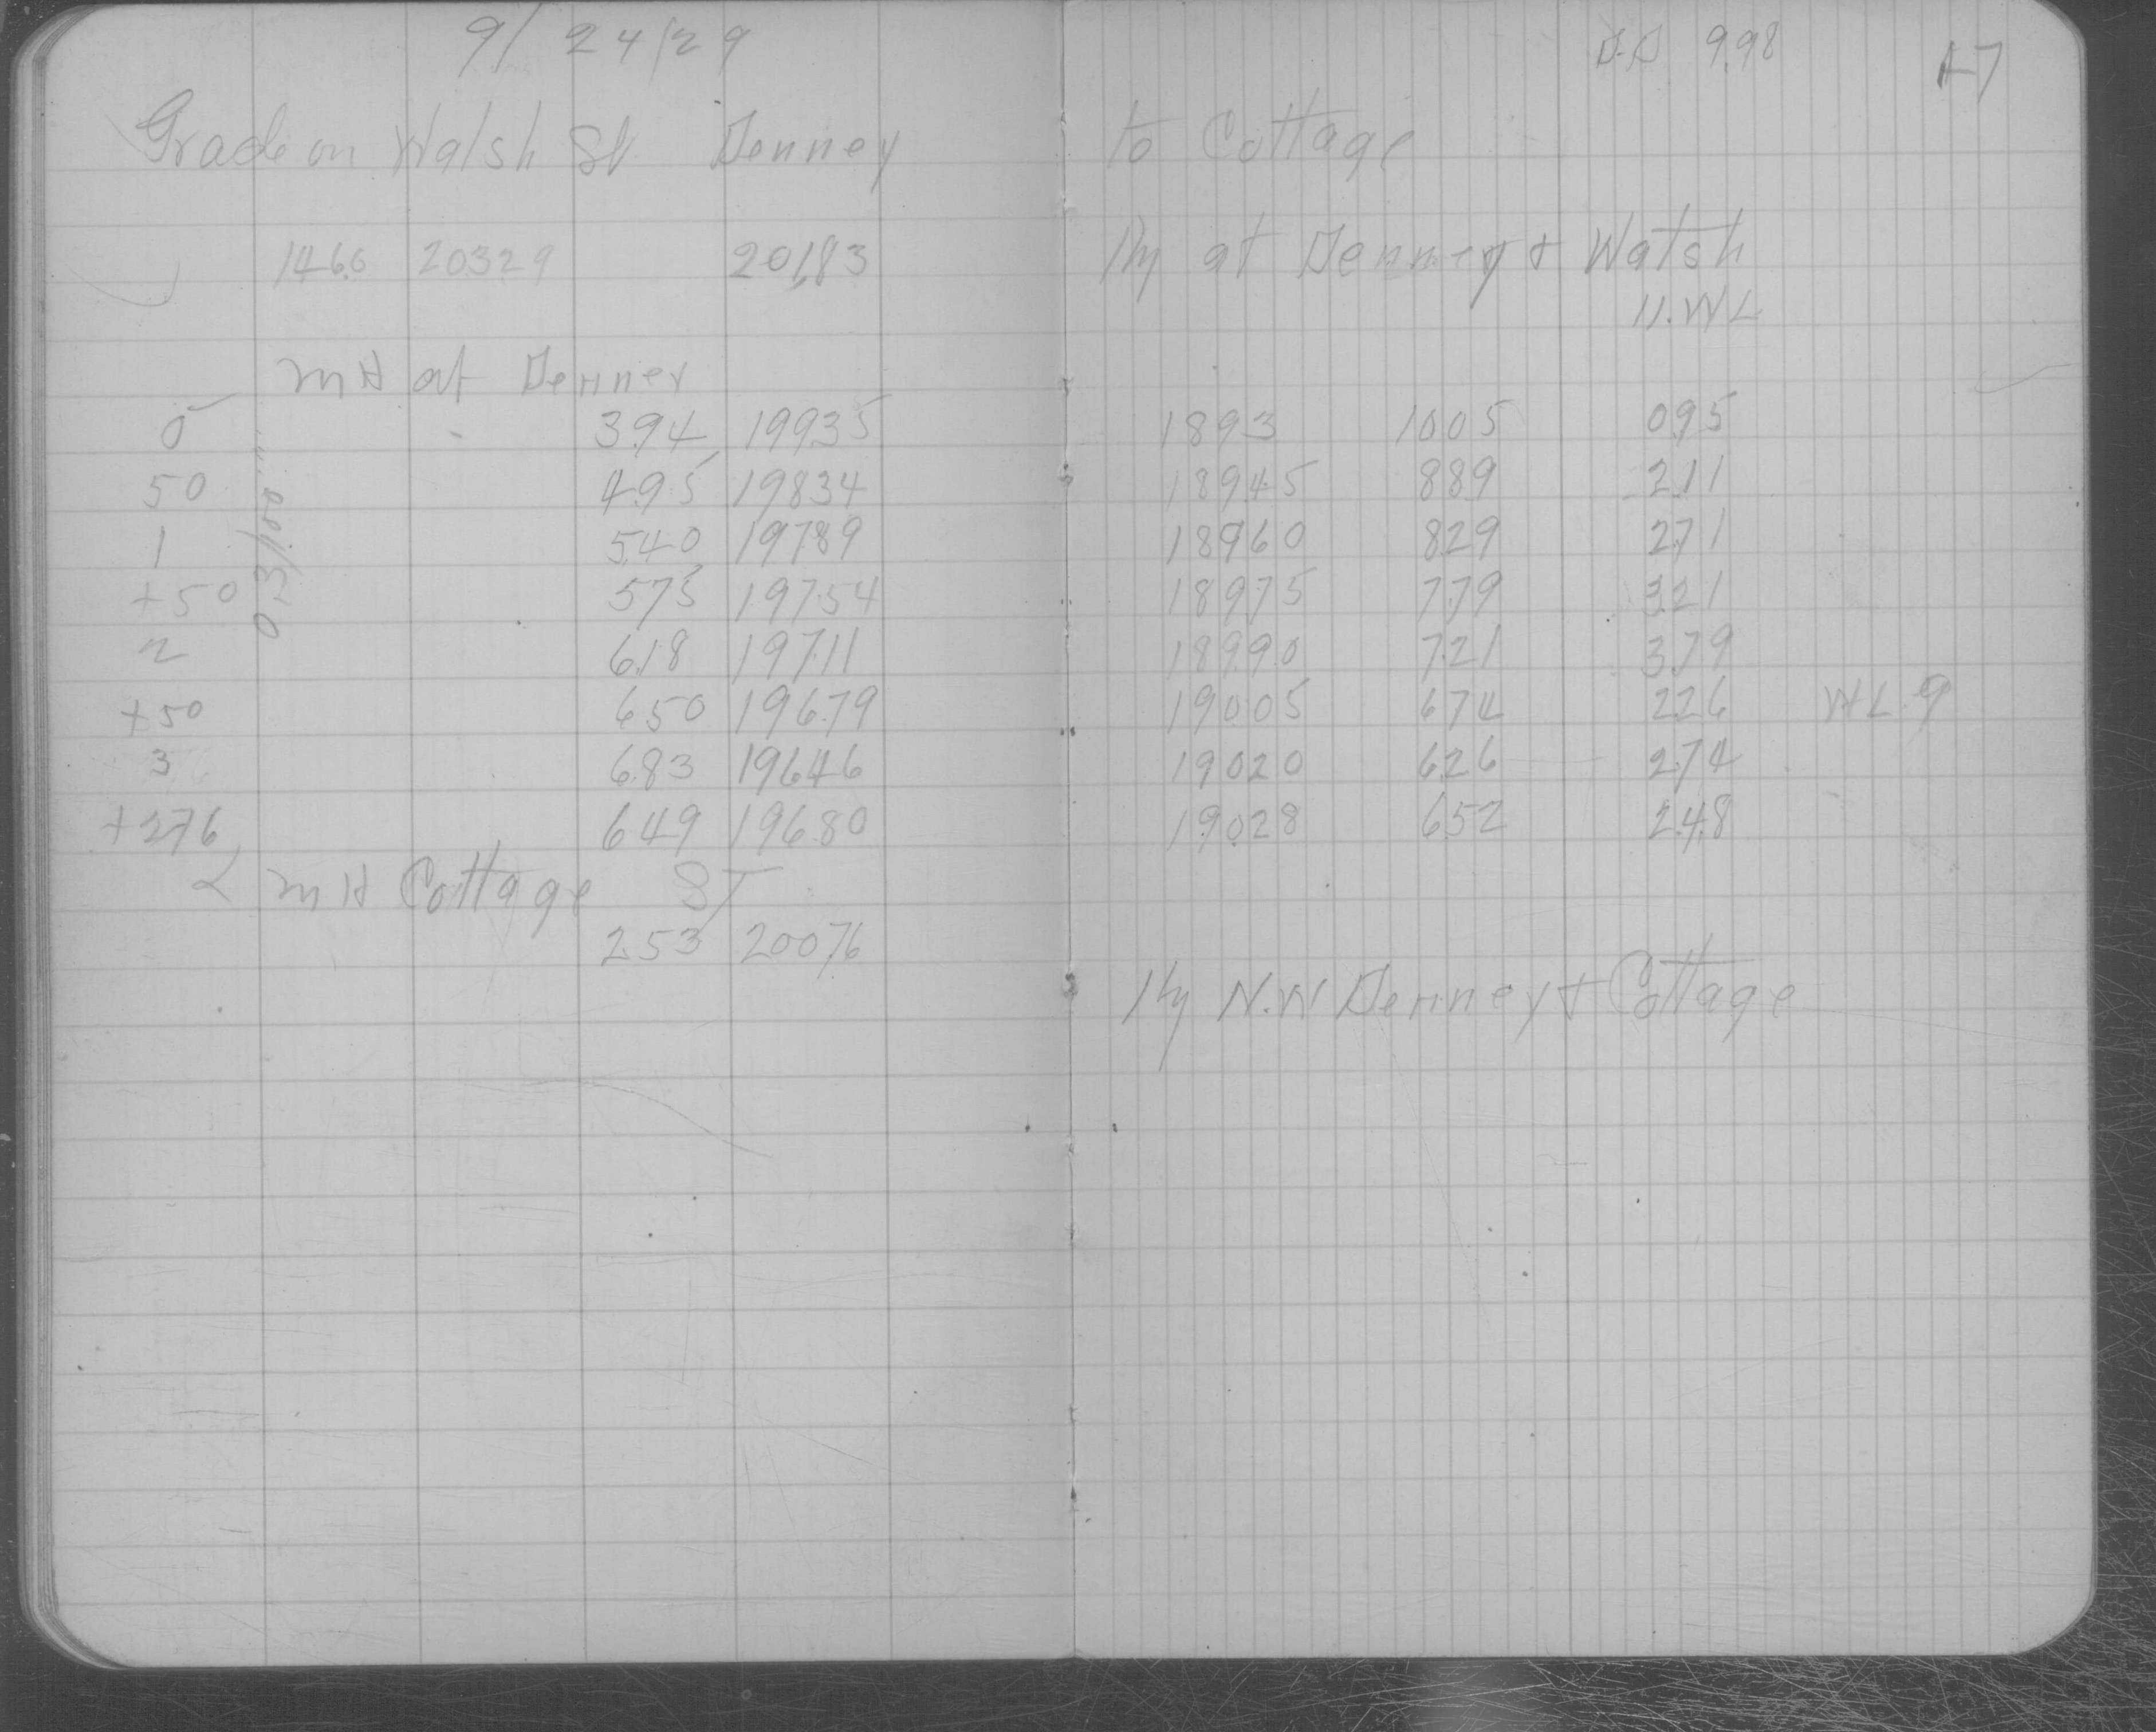 9/24/29
9.98
17
Grade on Walsh St Denney to Cottage
1466 20329 201.83 Hy at Denney & Walsh
11.WL
MH at Denney
0 394 19935 1893 1005 095
50 495 19834 18945 889 211
1 540 19789 18960 829 271
+50 575 19754 18975 779 321
2 618 19711 18990 721 379
+50 650 19679 19005 674 226 WL 9
3 683 19646 19020 626 274
+276 649 19680 19028 652 248
0.3/100
MH Cottage ST
253 20076
Hy N.W Denney & Cottage